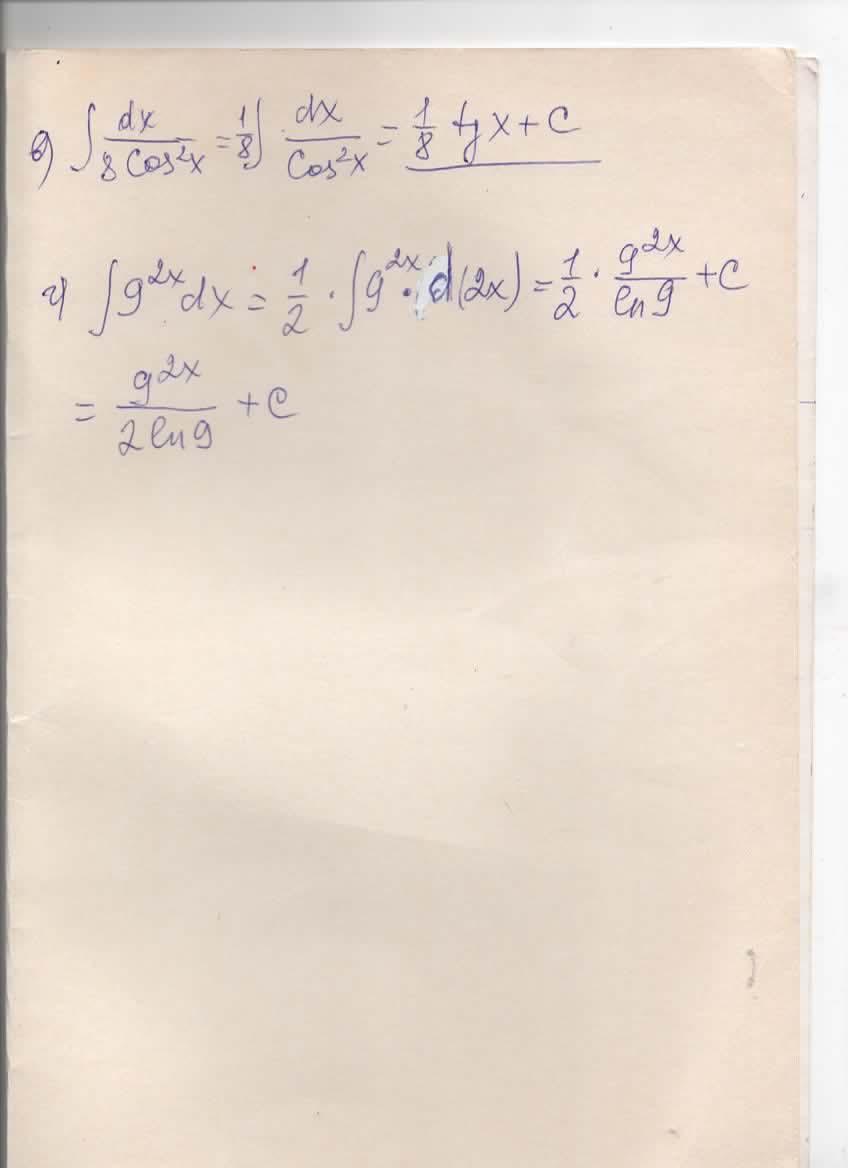 в) ∫ dx / 8 Cos²x = 1/8 ∫ dx / Cos²x = 1/8 tg x + C
г) ∫ 9^2x dx = 1/2 · ∫ 9^2x · d(2x) = 1/2 · 9^2x / ln 9 + C
= 9^2x / 2 ln 9 + C